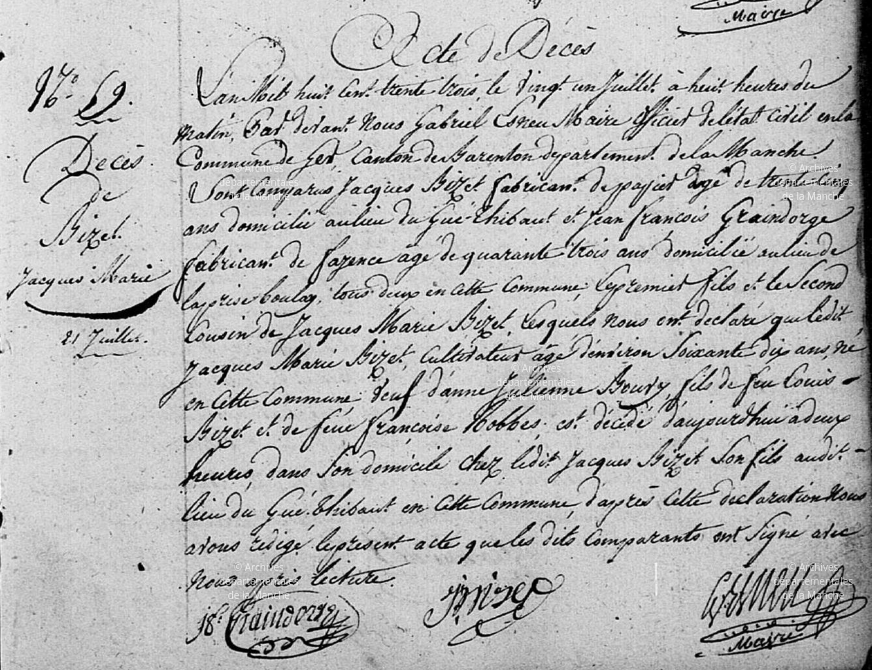 Maire
Acte de Décès
N.º 59.
Décès
de
Bizet
Jacques Marie
21 Juillet.
L'an Mil huit Cent trente trois, le vingt un Juillet à huit heures du
matin, Par devant Nous Gabriel Esneu Maire officier de l'état Civil en la
Commune de Ger, Canton de Barenton departement de la Manche
Sont Comparus Jacques Bizet fabricant de papier agé de trente
ans domicilié au lieu du Gué-thibaut et Jean francois Graindorge
fabricant de fayence agé de quarante trois ans domicilié au lieu de
la prise boulay, tous deux en Cette Commune, le premier fils et le Second
Cousin de Jacques Marie Bizet, Lesquels nous ont declaré que ledit
Jacques Marie Bizet, Cultivateur agé d'environ Soixante dix ans, né
en Cette Commune veuf d'anne Julienne Boury, fils de feu Louis
Bizet et de feue françoise Hobbes, est décédé d'aujourd'hui à deux
heures, dans Son domicile chez ledit Jacques Bizet Son fils audit
lieu du Gué-thibaut en Cette Commune, d'après Cette declaration Nous
avons rédigé le présent acte que les dits Comparants ont Signé avec
Nous après lecture.
J Bizet
Graindorge
Esneu
Maire
Archives
départementales
de la Manche